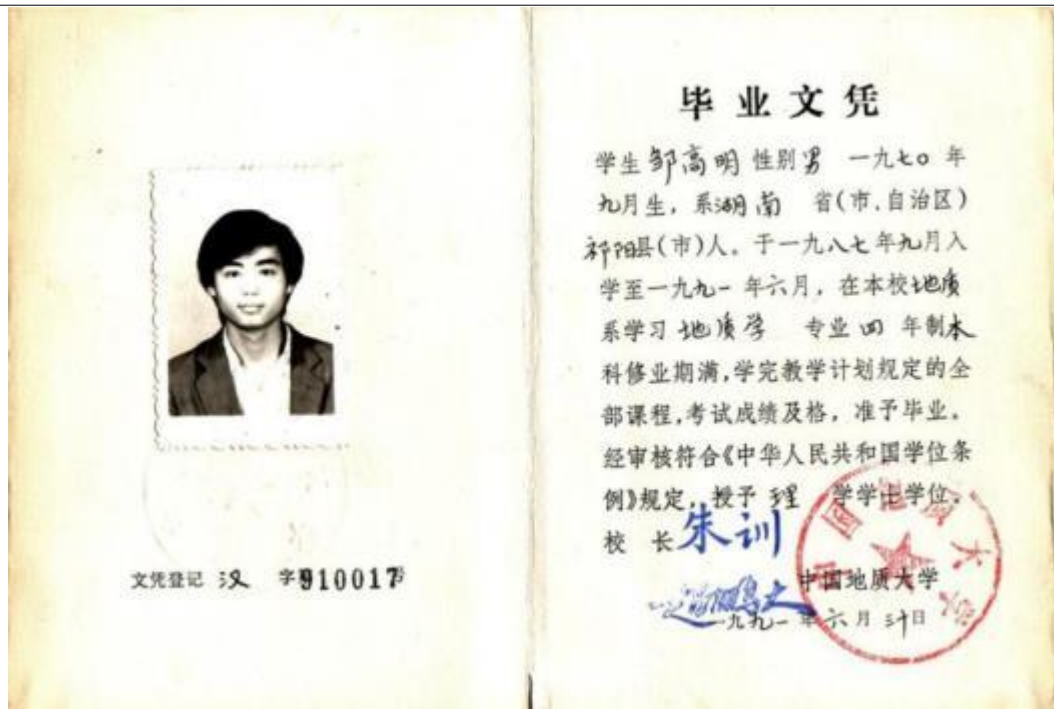 文凭登记 汉 字910017号
毕业文凭
学生邹高明性别男 一九七〇年
九月生，系湖南 省(市、自治区)
祁阳县(市)人。于一九八七年九月入
学至一九九一年六月，在本校地质
系学习地质学 专业四年制本
科修业期满，学完教学计划规定的全
部课程，考试成绩及格，准予毕业。
经审核符合《中华人民共和国学位条
例》规定，授予理 学学士学位。
校 长 朱训
中国地质大学
一九九一年六月卅日
中国地质大学